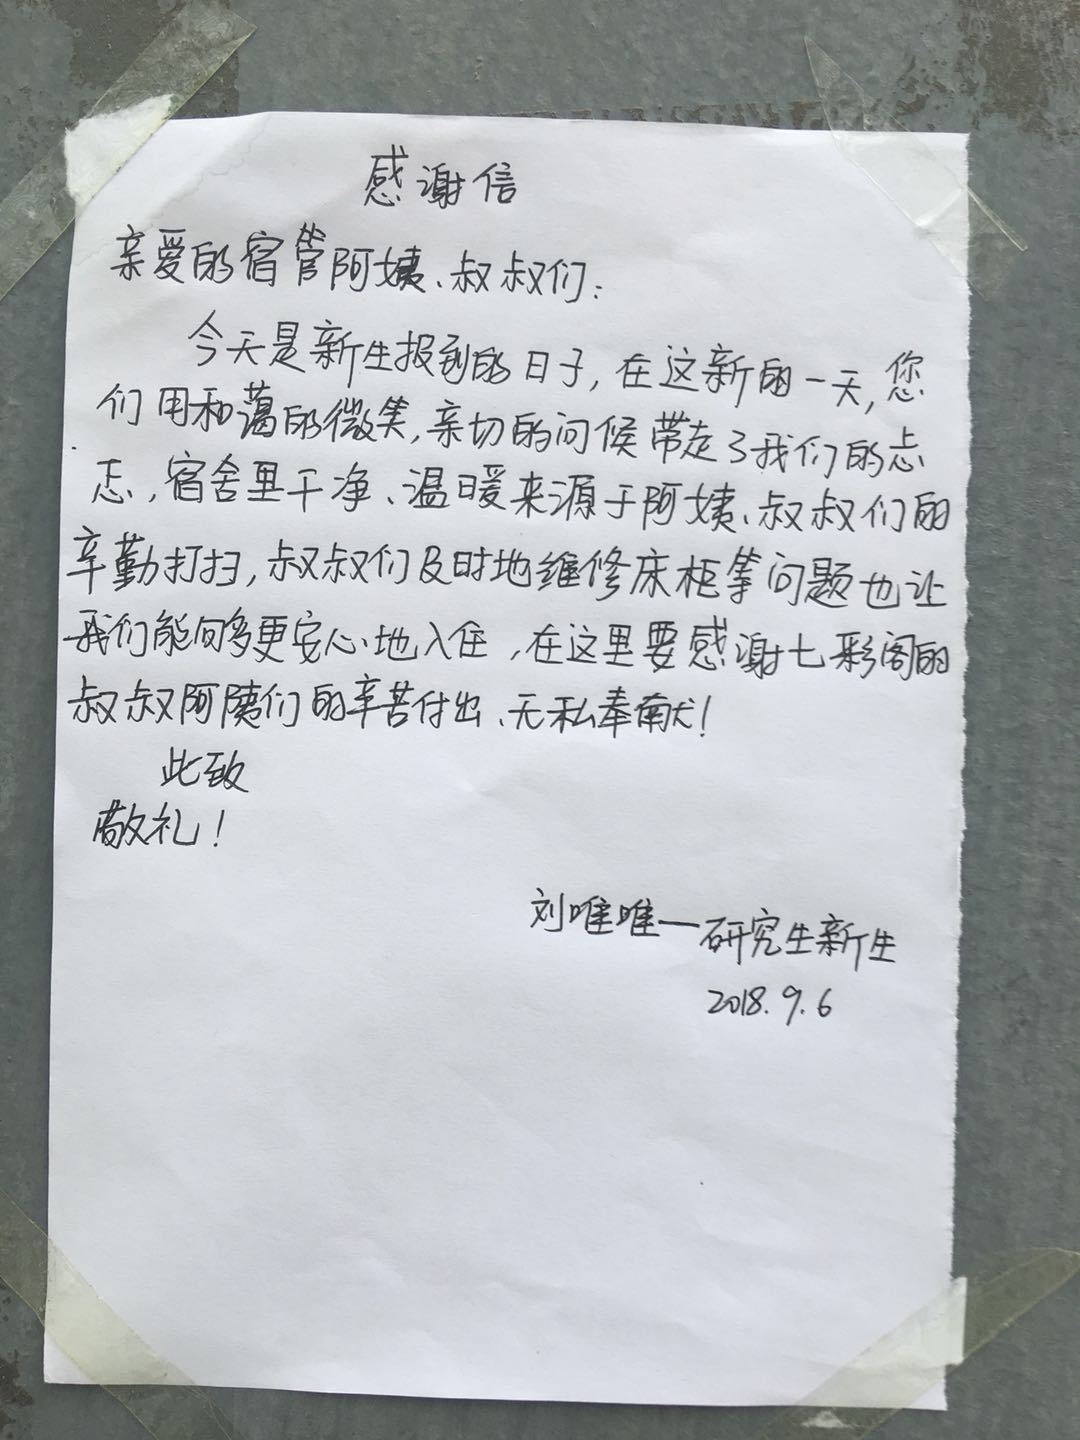 感谢信
亲爱的宿管阿姨、叔叔们:
今天是新生报到的日子,在这新的一天,您
们用和蔼的微笑,亲切的问候带走了我们的忐
忑,宿舍里干净、温暖来源于阿姨、叔叔们的
辛勤打扫,叔叔们及时地维修床柜等问题也让
我们能够更安心地入住,在这里要感谢七彩阁的
叔叔阿姨们的辛苦付出、无私奉献!
此致
敬礼!
刘唯唯—研究生新生
2018.9.6